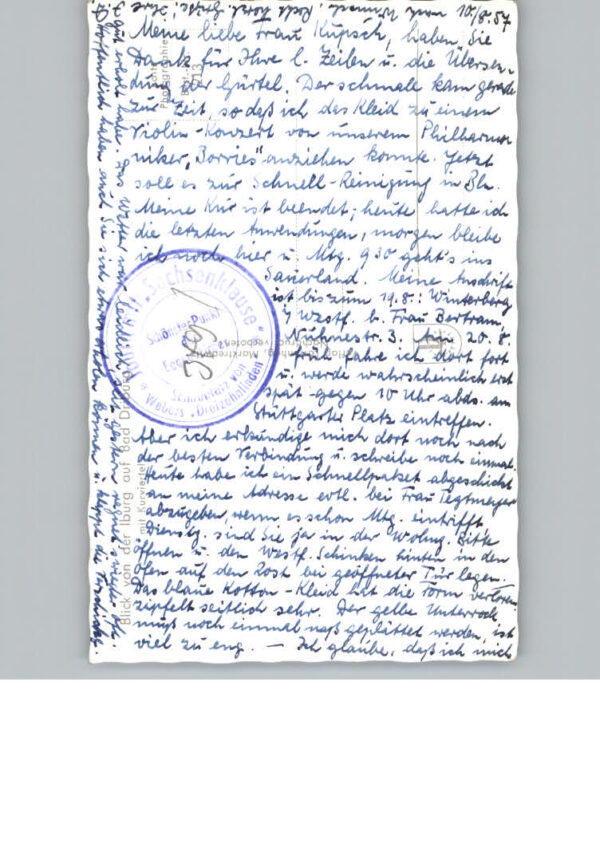 10./8.57
Meine liebe Frau Kupsch, haben Sie
Dank für Ihre l. Zeilen u. die Übersen-
dung der Gürtel. Der schmale kam gerade
zur Zeit, so daß ich das Kleid zu einem
Violin-Konzert von unserem Philharmo
niker „Borries" anziehen konnte. Jetzt
soll es zur Schnell-Reinigung in Bln.
Meine Kur ist beendet; heute hatte ich
die letzten Anwendungen, morgen bleibe
ich noch hier u. Mtg. 9³⁰ geht's ins
Sauerland. Meine Anschrift
ist bis zum 19.8.: Winterberg
i/ Westf. b. Frau Bertram,
Nuhnestr. 3. Am 20.8.
früh fahre ich dort fort
u. werde wahrscheinlich erst
spät gegen 10 Uhr abds. am
Stuttgarter Platz eintreffen.
Aber ich erkundige mich dort noch nach
der besten Verbindung u. schreibe noch einmal.
Heute habe ich ein Schnellpaket abgeschickt
an meine Adresse evtl. bei Frau Tegtmeyer
abzugeben, wenn es schon Mtg. eintrifft,
Dienstg. sind Sie ja in der Wohng. Bitte
öffnen u. den Westf. Schinken hinten in den
Ofen auf den Rost bei geöffneter Tür legen.
Das blaue Kotton-Kleid hat die Form verloren
zipfelt seitlich sehr. Der gelbe Unterrock
muß noch einmal naß geplättet werden, ist
viel zu eng. — Ich glaube, daß ich mich
gut erholt habe. Das Wetter war
Hoffentlich haben auch Sie sich etwas erholen können u. klappt die
„Sachsenklause"
Schönster Punkt
Schönstatt von
Webers „Dreizehnlinden"
Blick von der Iburg auf Bad Driburg
mit Kurviertel
Nachdruck verboten